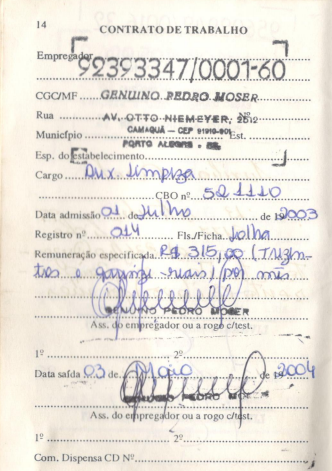 14 CONTRATO DE TRABALHO
Empregador
92393347/0001-60
CGC/MF GENUINO PEDRO MOSER
Rua AV. OTTO NIEMEYER, Nº 2512
Município CAMAQUÃ - CEP 91910-001 Est.
PORTO ALEGRE - RS
Esp. do estabelecimento
Cargo Aux. limpeza
CBO nº 521110
Data admissão 01 de Julho de 2003
Registro nº 014 Fls./Ficha. folha
Remuneração especificada R$ 315,00 (Trezen-
tos e quinze reais) por mês
GENUINO PEDRO MOSER
Ass. do empregador ou a rogo c/test.
1º 2º
Data saída 03 de Maio de 2004
GENUINO PEDRO MOSER
Ass. do empregador ou a rogo c/test.
1º 2º
Com. Dispensa CD Nº